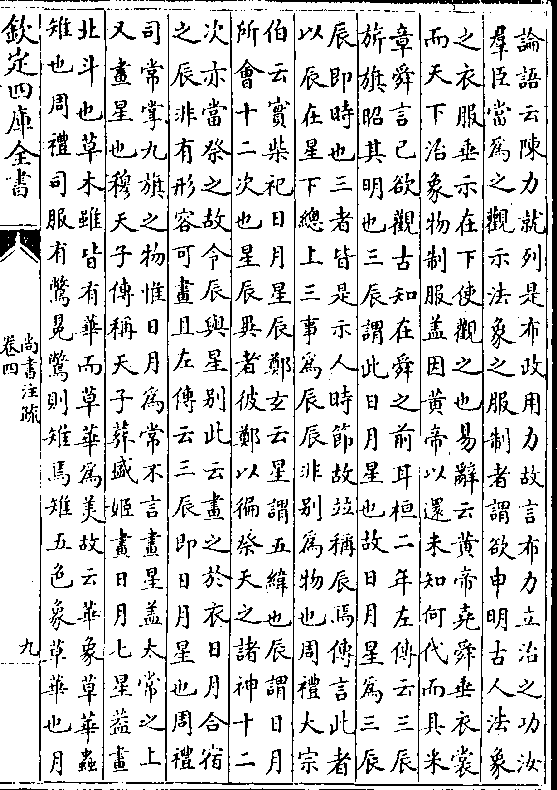 論語云陳力就列是布政用力故言布力立治之功汝
羣臣當為之觀示法象之服制者謂欲申明古人法象
之衣服垂示在下使觀之也易辭云黄帝堯舜垂衣裳
而天下治象物制服盖因黄帝以還未知何代而具米
章舜言已欲觀古知在舜之前耳桓二年左傳云三辰
旂旗昭其明也三辰謂此日月星也故日月星為三辰
辰即時也三者皆是示人時節故竝稱辰焉傳言此者
以辰在星下總上三事為辰辰非别為物也周禮大宗
伯云實柴祀日月星辰鄭𤣥云星謂五緯也辰謂日月
所會十二次也星辰異者彼鄭以徧祭天之諸神十二
次亦當祭之故令辰與星别此云畫之於衣日月合宿
之辰非有形容可畫且左傳云三辰即日月星也周禮
司常掌九旗之物惟日月為常不言畫星盖太常之上
又畫星也穆天子傳稱天子葬盛姬畫日月七星葢畫
北斗也草木雖皆有華而草華為美故云華象草華蟲
雉也周禮司服有鷩冕鷩則雉焉雉五色象草華也月
欽定四庫全書
尚書注疏
卷四
九